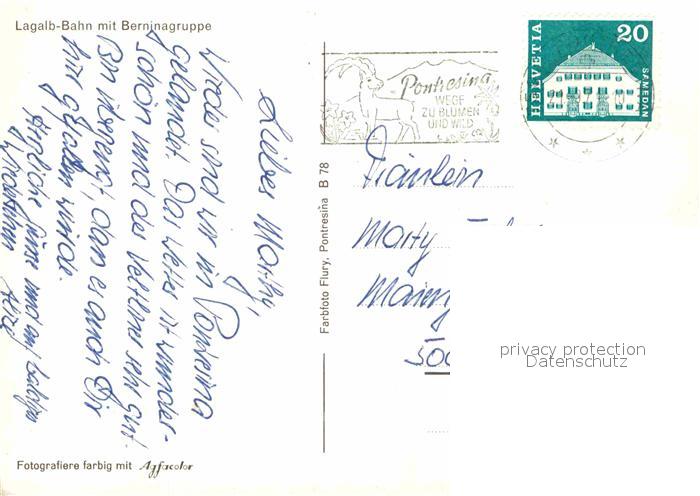 Lagalb-Bahn mit Berninagruppe
Liebe Marty,
Wieder sind wir in Pontresina
gelandet. Das Wetter ist wunder-
schön und der Veltliner sehr gut.
Bin überzeugt, dass es auch Dir
hier gefallen würde.
Herzliche Grüsse und auf baldiges
Fotografiere farbig mit Agfacolor
Farbfoto Flury, Pontresina B 78
Pontresina
WEGE
ZU BLUMEN
UND WILD
HELVETIA
20
SAMEDAN
Fräulein
Marty
500
privacy protection
Datenschutz